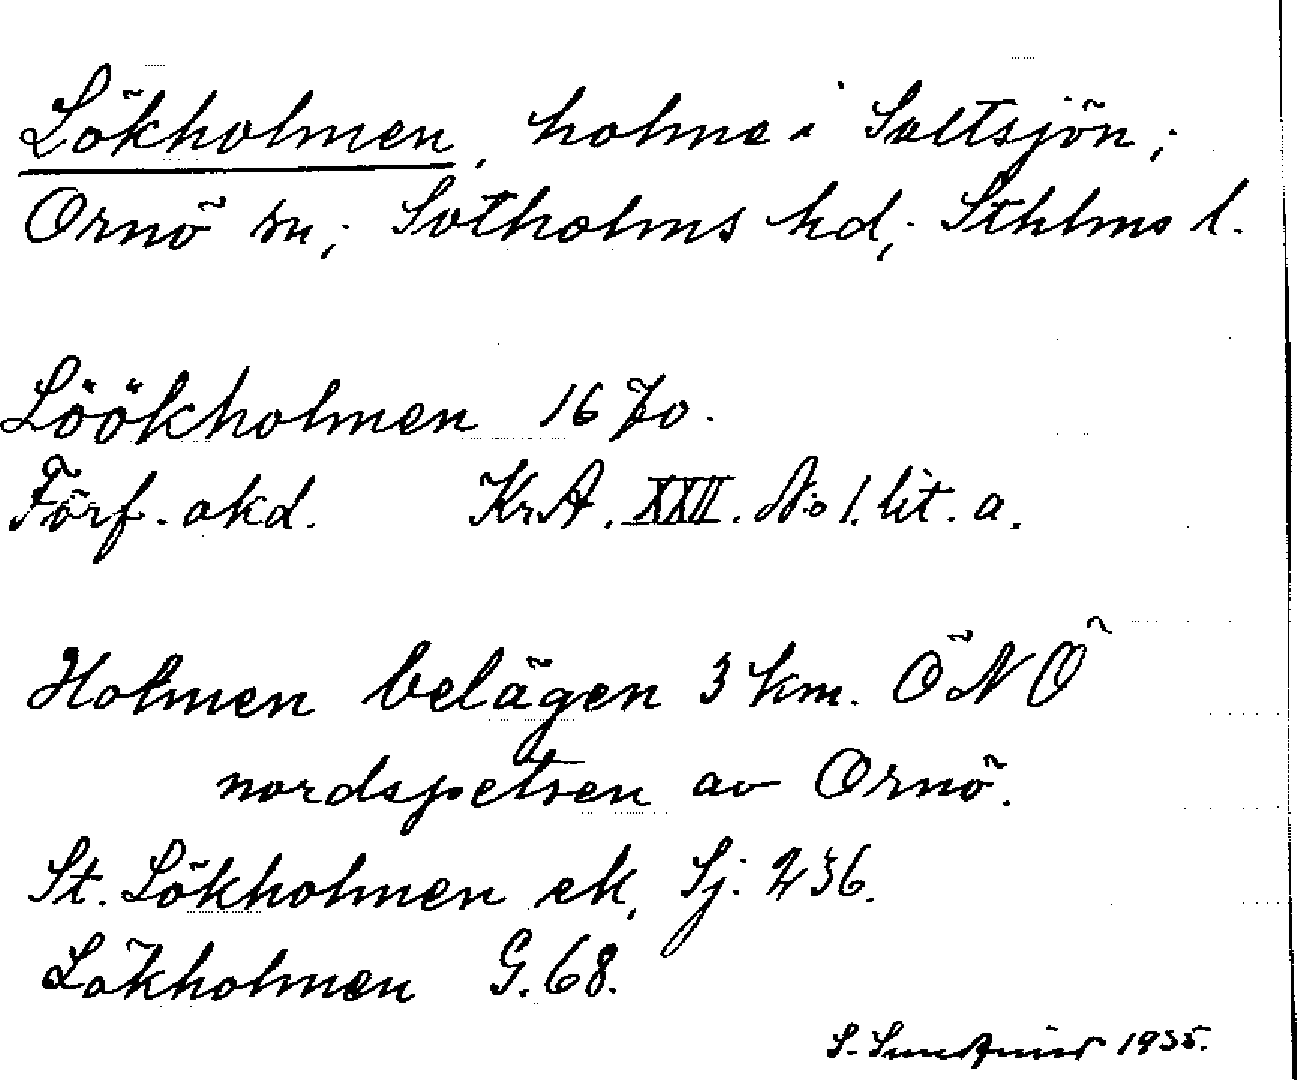 Lökholmen, holme i Saltsjön;
Ornö sn; Sotholms hd; Sthlms l.
Löökholmen 1670.
Förf. okd. Kr.A. XXII. No 1. lit. a.
Holmen belägen 3 km. ÖNÖ
nordspetsen av Ornö.
St. Lökholmen ek, Sj: 236.
Lökholmen G. 68.
S. 1935.